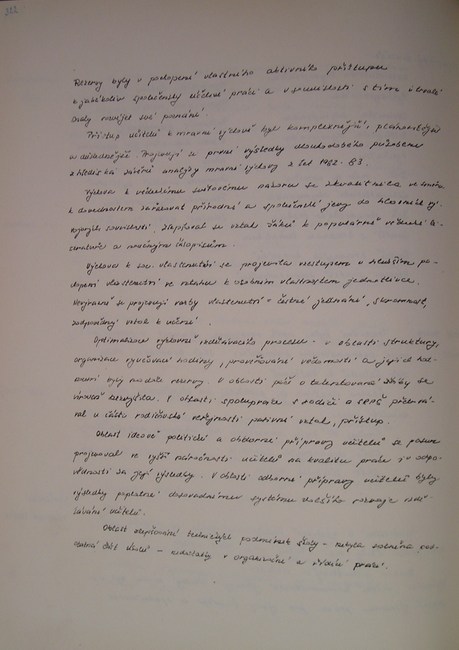 Rezervy byly v pochopení vlastního aktivního přístupu
k jakékoliv společensky užitečné práci a v souvislosti s tím i trvalé
snahy rozvíjet své poznání.
Přístup učitelů k mravní výchově byl komplexnější, plánovitější
a důslednější. Projevují se první výsledky dlouhodobého průzkumu
z hlediska státní analýzy mravní výchovy z let 1982 - 83.
Výchova k vědeckému světovému názoru se zkvalitnila ve směru
k dovednostem zařazovat přírodní a společenské jevy do hlavních
souvislostí. Zlepšoval se vztah žáků k populárně vědecké li-
teratuře a naučným časopisům.
Výchova k soc. vlastenectví se projevila vzestupem v hlubším po-
chopení vlastenectví ve vztahu k osobním vlastnostem jednotlivce.
Nevýrazně se projevují vazby vlastenectví - čestné jednání, skromnost,
zodpovědný vztah k učení.
Optimalizace výchovně vzdělávacího procesu - v oblasti struktury,
organizace vyučovací hodiny, prověřování vědomostí a jejich hod-
nocení byly nadále rezervy. V oblasti péče o talentované žáky se
úroveň nezvýšila. V oblasti spolupráce s rodiči a SRPŠ přetrvá-
val u části rodičovské veřejnosti pasivní vztah, přístup.
Oblast ideově politické a odborné přípravy učitelů se
projevoval ve vyšší náročnosti učitelů na kvalitu práce i v odpo-
vědnosti za její výsledky. V oblasti odborné přípravy učitelů byly
výsledky poplatné dosavadnímu systému dalšího vzdě-
lávání učitelů.
Oblast zlepšování technických podmínek školy - nebyla
část úkolů - nedostatky v organizační a řídící práci.